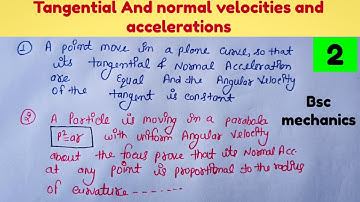 Tangential And normal velocities and
accelerations
① A point move in a plane curve, so that
its tangential & Normal Acceleration
are Equal And the Angular Velocity
of the tangent is constant
2
Bsc
mechanics
② A Particle is moving in a parabola
P²=ar with uniform Angular Velocity
about the focus prove that its Normal Acc.
at any point is proportional to the radius
of curvature -------